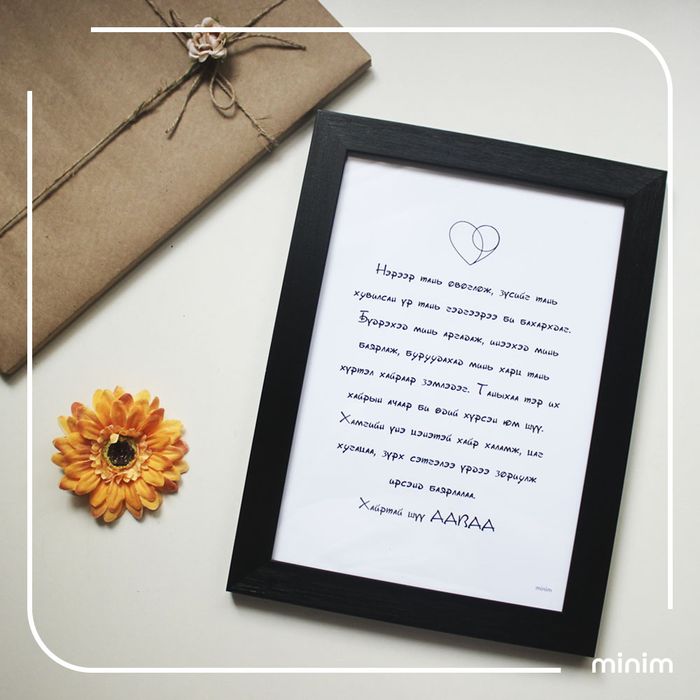 Нэрээр тань овоглож, зүсийг тань
хувилсан үр тань гэдгээрээ би бахархдаг.
Бүдрэхэд минь аргадаж, инээхэд минь
баярлаж, буруудахад минь харц тань
хүртэл хайраар зэмлэдэг. Таныхаа тэр их
хайрын ачаар би өдий хүрсэн юм шүү.
Хамгийн үнэ цэнэтэй хайр халамж, цаг
хугацаа, зүрх сэтгэлээ үрдээ зориулж
ирсэнд баярлалаа.
Хайртай шүү ААВДАА
minim
minim